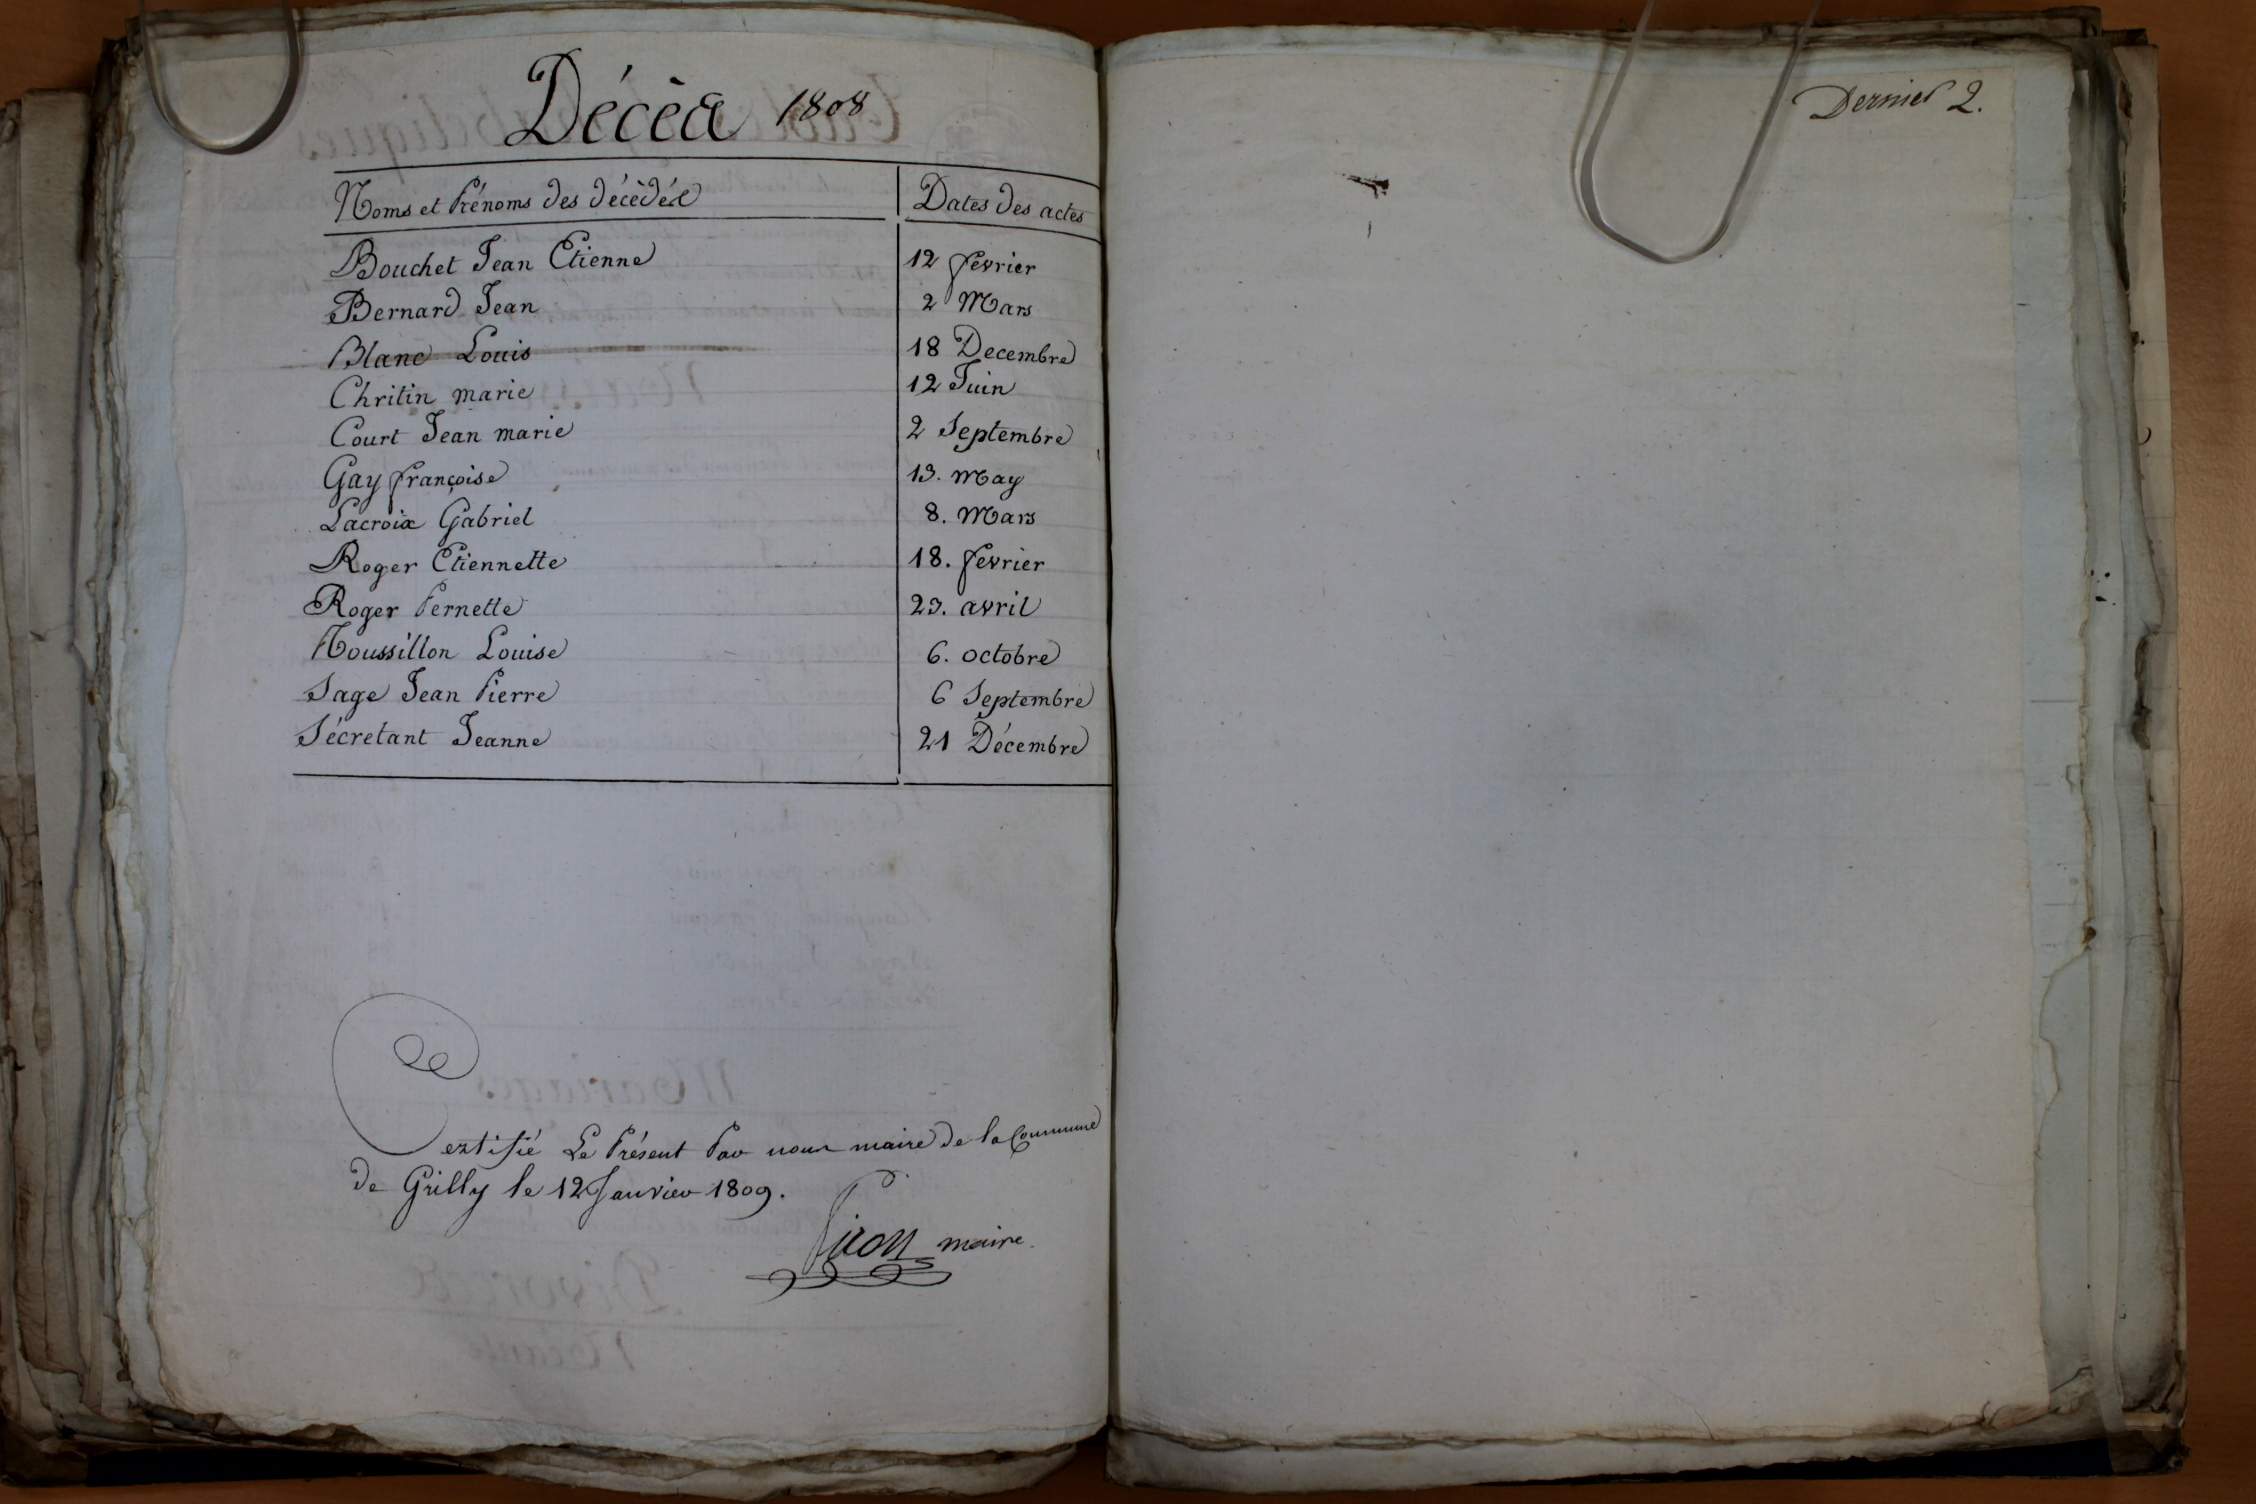 Décès 1808
Noms et Prénoms des décèdés Dates des actes
Bouchet Jean Etienne 12 fevrier
Bernard Jean 2 Mars
Blanc Louis 18 Decembre
Chritin marie 12 Juin
Court Jean marie 2 Septembre
Gay françoise 13. May
Lacroix Gabriel 8. Mars
Roger Etiennette 18. fevrier
Roger Pernette 23. avril
Roussillon Louise 6. octobre
Sage Jean Pierre 6 Septembre
Sécretant Jeanne 21 Décembre
Certifié Le Présent Par nous maire de la Commune
de Grilly le 12 Janvier 1809.
maire.
Dernier 2.